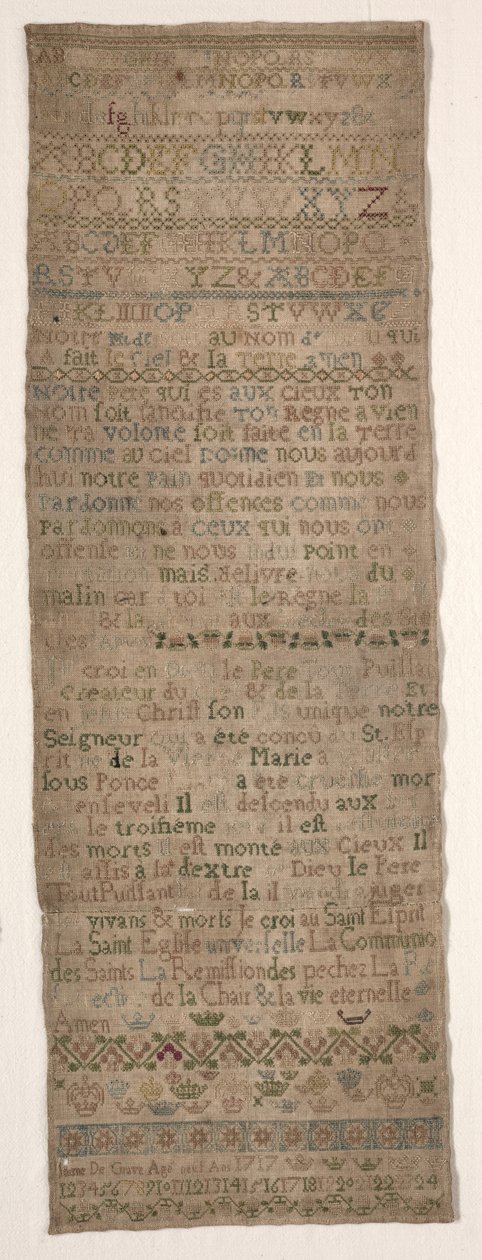 AB GHIK NOPQ RS VW
CDEF LMNOPQ RSTVWX
fghiklmnopqrstvwxyz&
ABCDEFGHIKLMN
OPQRS VWXYZ&
ABCDEFGHIKLMNOPQ
RSTV YZ&ABCDEFG
HIKLMNOPQRSTVWX&
Notre au Nom de qui
A fait le Ciel & la Terre amen
Notre Pere qui es aux cieux Ton
Nom soit sanctifie Ton Regne avien
ne Ta volonte soit faite en la Terre
comme au ciel Donne nous aujourd
hui notre Pain quotidien Et nous
Pardonne nos offences comme nous
Pardonnons a ceux qui nous ont
offense et ne nous indui point en
tentation mais delivre nous du
malin car a toi est le Regne la
& la aux des Sie
cles Amen
croi en Dieu le Pere Tout Puissant
Createur du Ciel & de la Terre Et
en Jesus Christ son Fils unique notre
Seigneur qui a ete concu du St. Esp
rit ne de la Vierge Marie a
sous Ponce a ete crucifie mort
enseveli Il est descendu aux
le troisieme jour il est
des morts Il est monte aux Cieux Il
est assis a la dextre de Dieu le Pere
Tout Puissant de la il viendra juger
les vivans & morts Je croi au Saint Esprit
La Sainte Eglise universelle La Communio
des Saints La Remission des pechez La Re
surrection de la Chair & la vie eternelle
Amen
De Grave Age neuf Ans 1717
1 2 3 4 5 6 7 8 9 10 11 12 13 14 15 16 17 18 19 20 21 22 23 24